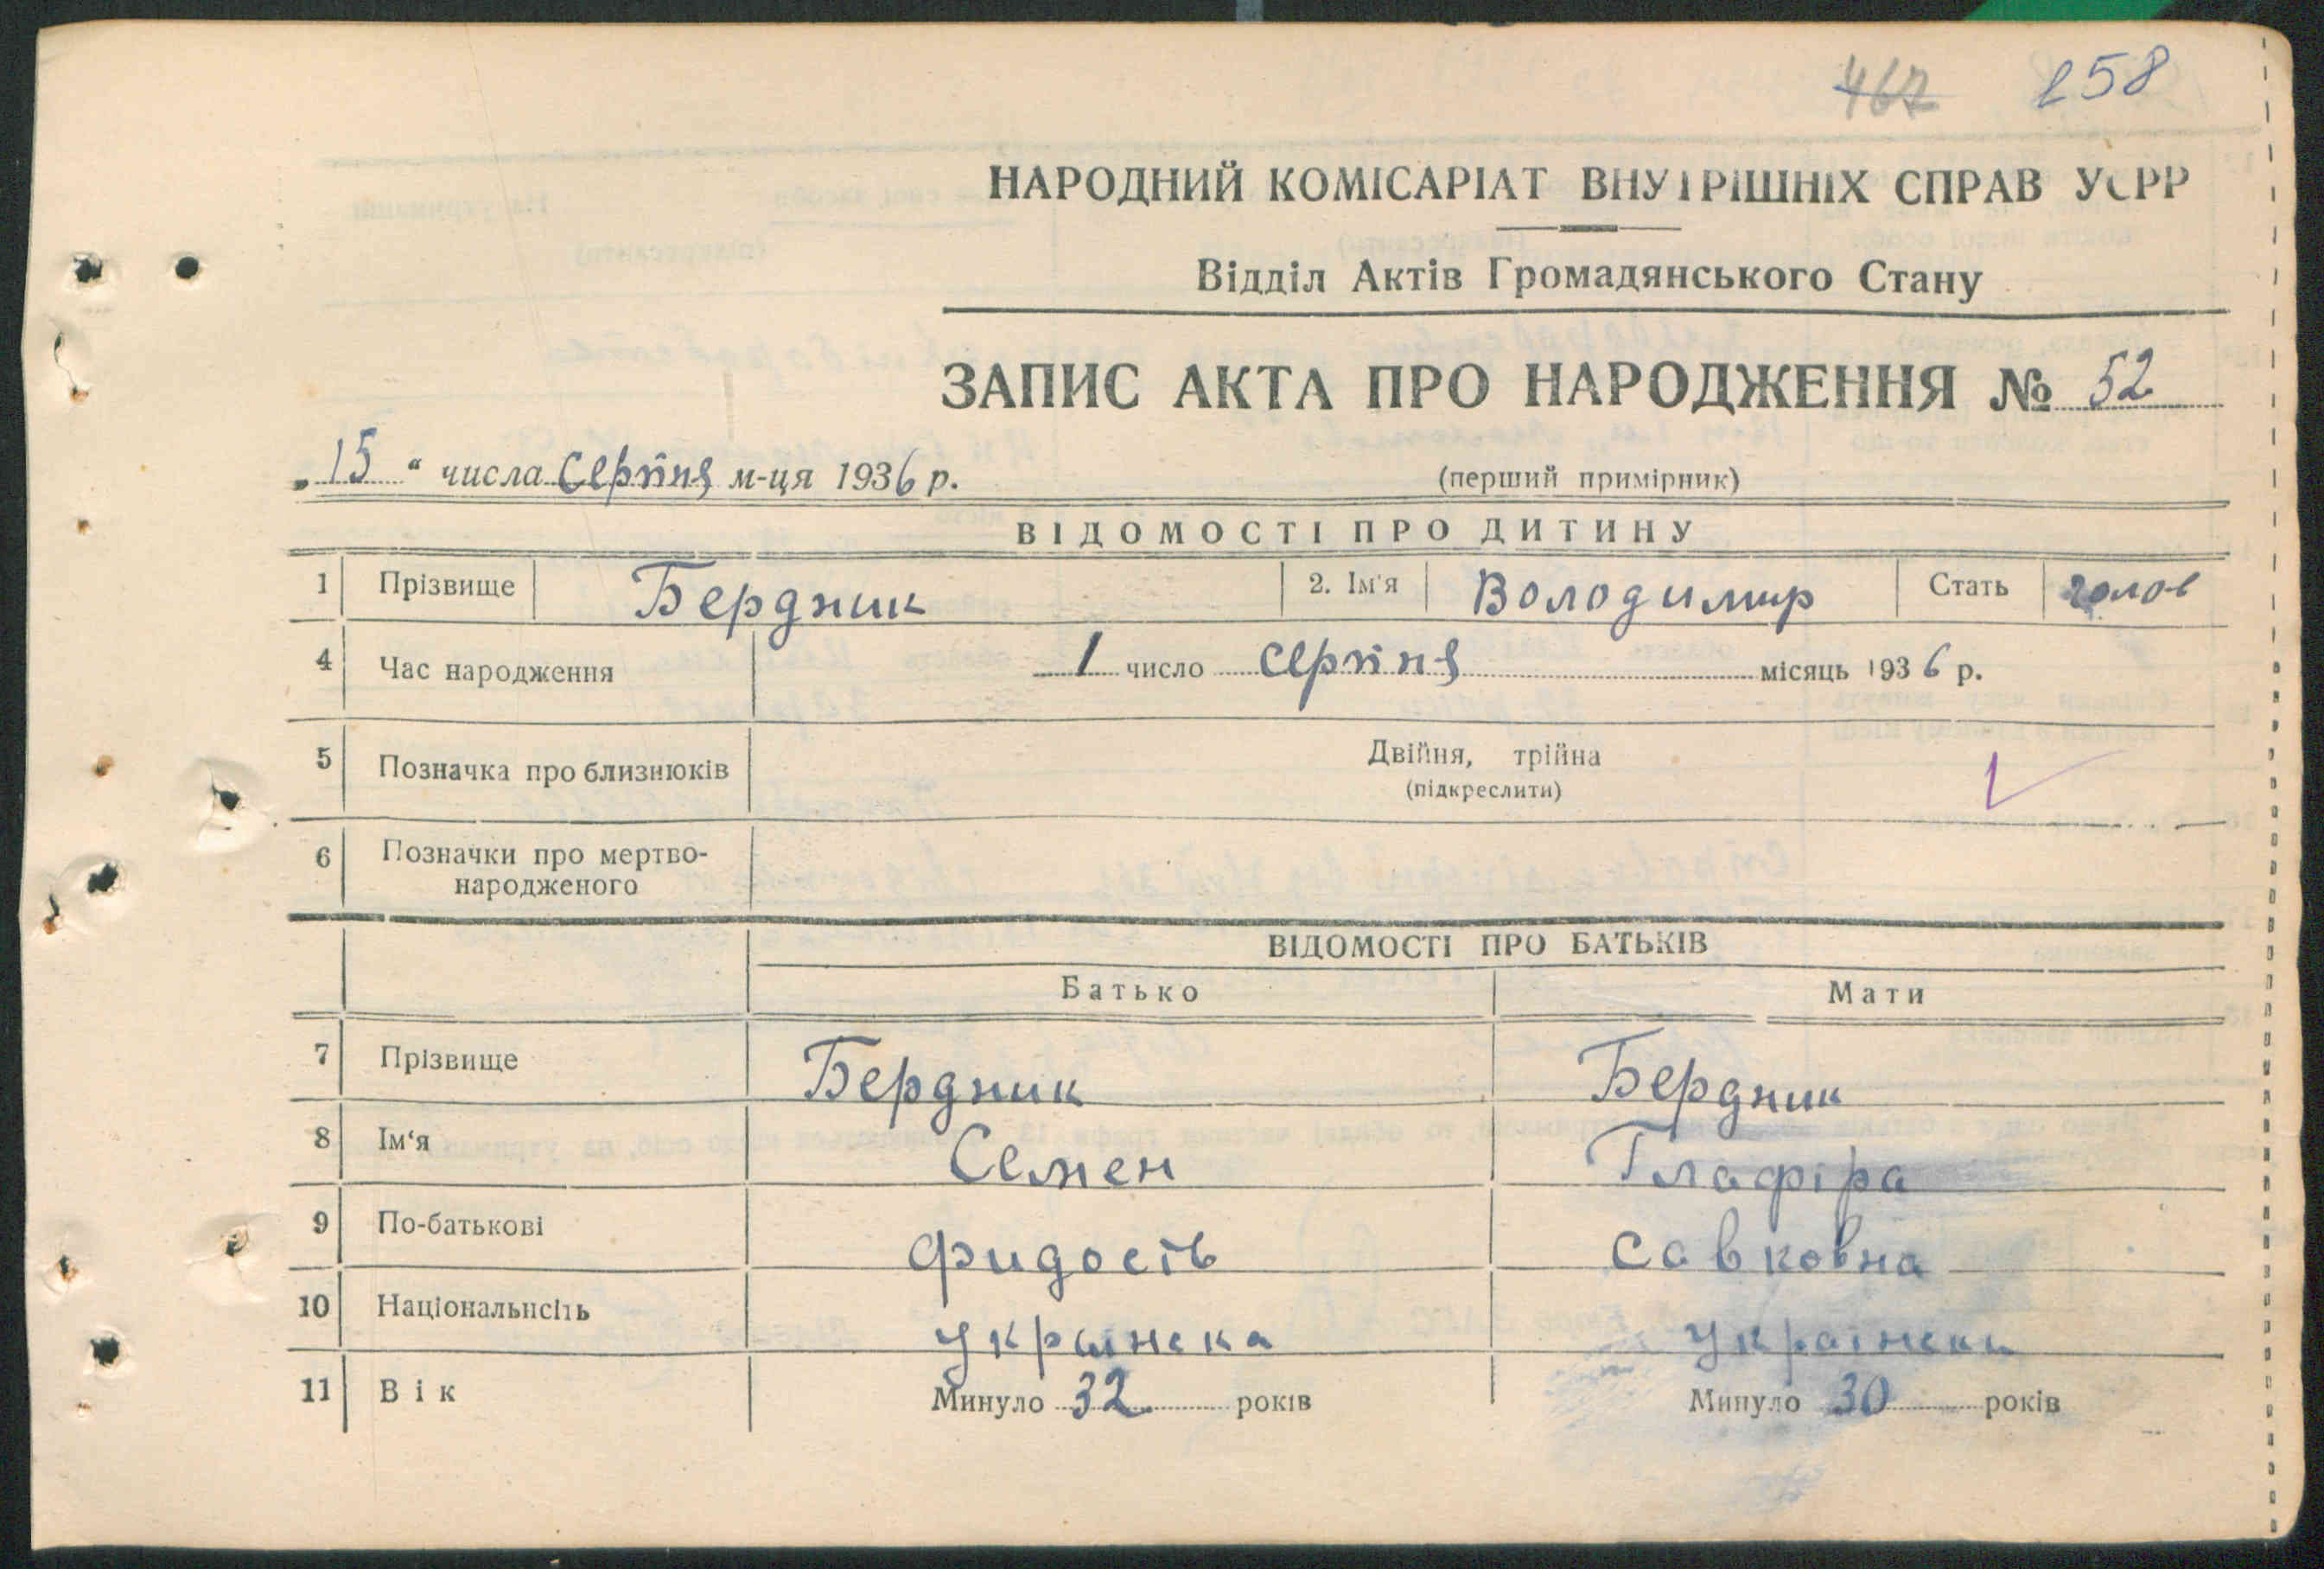 467 258
НАРОДНИЙ КОМІСАРІАТ ВНУТРІШНІХ СПРАВ УСРР
Відділ Актів Громадянського Стану
ЗАПИС АКТА ПРО НАРОДЖЕННЯ № 52
„15“ числа серпня м-ця 1936 р.
(перший примірник)
ВІДОМОСТІ ПРО ДИТИНУ
1 Прізвище Бердник 2. Ім'я Володимир Стать чолов
4 Час народження 1 число серпня місяць 1936 р.
5 Позначка про близнюків Двійня, трійна
(підкреслити)
6 Позначки про мертво-
народженого
ВІДОМОСТІ ПРО БАТЬКІВ
Батько Мати
7 Прізвище Бердник Бердник
8 Ім‘я Семен Глафіра
9 По-батькові Савковна
10 Національнсіть українска українска
11 Вік Минуло 32 років Минуло 30 років